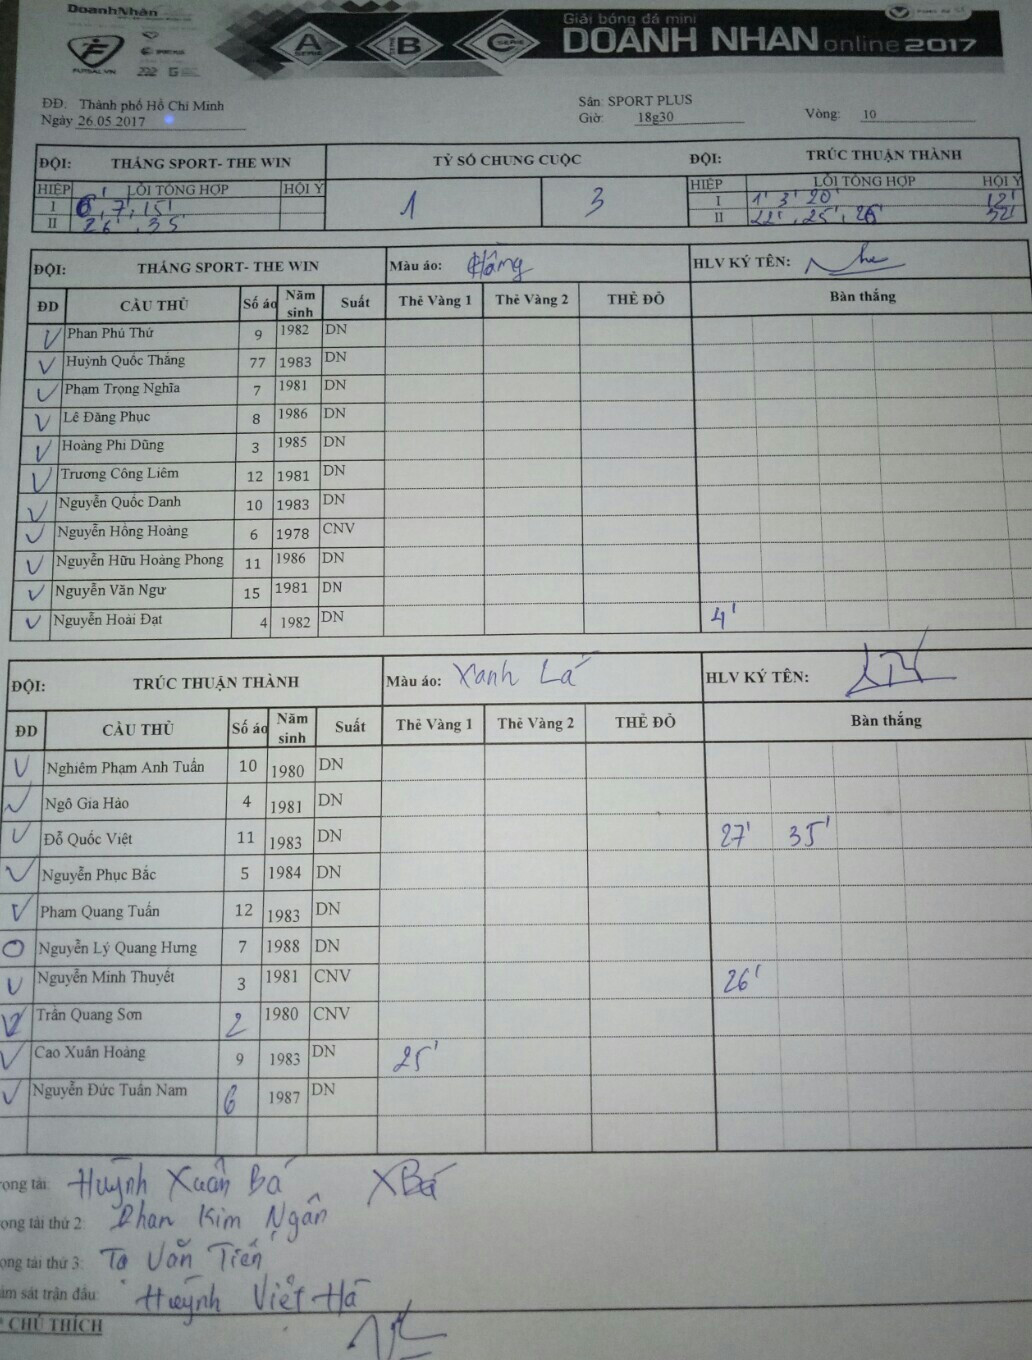 DoanhNhân
FUTSAL.VN
A SERIE
B
C SERIE
Giải bóng đá mini
DOANH NHAN online 2017
ĐĐ: Thành phố Hồ Chí Minh
Sân: SPORT PLUS
Ngày 26.05.2017
Giờ: 18g30
Vòng: 10
ĐỘI: THẮNG SPORT- THE WIN
TỶ SỐ CHUNG CUỘC
ĐỘI: TRÚC THUẬN THÀNH
HIỆP LỖI TỔNG HỢP HỘI Ý
1 3
HIỆP LỖI TỔNG HỢP HỘI Ý
I 6', 7', 15'
I 1' 3' 20' 12'
II 26', 35'
II 22', 25', 26' 32'
ĐỘI: THẮNG SPORT- THE WIN Màu áo: Hồng HLV KÝ TÊN:
ĐD CẦU THỦ Số áo Năm sinh Suất Thẻ Vàng 1 Thẻ Vàng 2 THẺ ĐỎ Bàn thắng
V Phan Phú Thứ 9 1982 DN
V Huỳnh Quốc Thắng 77 1983 DN
V Phạm Trọng Nghĩa 7 1981 DN
V Lê Đăng Phục 8 1986 DN
V Hoàng Phi Dũng 3 1985 DN
V Trương Công Liêm 12 1981 DN
V Nguyễn Quốc Danh 10 1983 DN
V Nguyễn Hồng Hoàng 6 1978 CNV
V Nguyễn Hữu Hoàng Phong 11 1986 DN
V Nguyễn Văn Ngư 15 1981 DN
V Nguyễn Hoài Đạt 4 1982 DN 4'
ĐỘI: TRÚC THUẬN THÀNH Màu áo: Xanh Lá HLV KÝ TÊN:
ĐD CẦU THỦ Số áo Năm sinh Suất Thẻ Vàng 1 Thẻ Vàng 2 THẺ ĐỎ Bàn thắng
V Nghiêm Phạm Anh Tuấn 10 1980 DN
V Ngô Gia Hào 4 1981 DN
V Đỗ Quốc Việt 11 1983 DN 27' 35'
V Nguyễn Phục Bắc 5 1984 DN
V Phạm Quang Tuấn 12 1983 DN
O Nguyễn Lý Quang Hưng 7 1988 DN
V Nguyễn Minh Thuyết 3 1981 CNV 26'
V Trần Quang Sơn 2 1980 CNV
V Cao Xuân Hoàng 9 1983 DN 25'
V Nguyễn Đức Tuấn Nam 6 1987 DN
rọng tài: Huỳnh Xuân Bá XBá
ọng tài thứ 2: Phan Kim Ngân
ọng tài thứ 3: Tạ Văn Tiến
ám sát trận đấu: Huỳnh Viết Hà
* CHÚ THÍCH